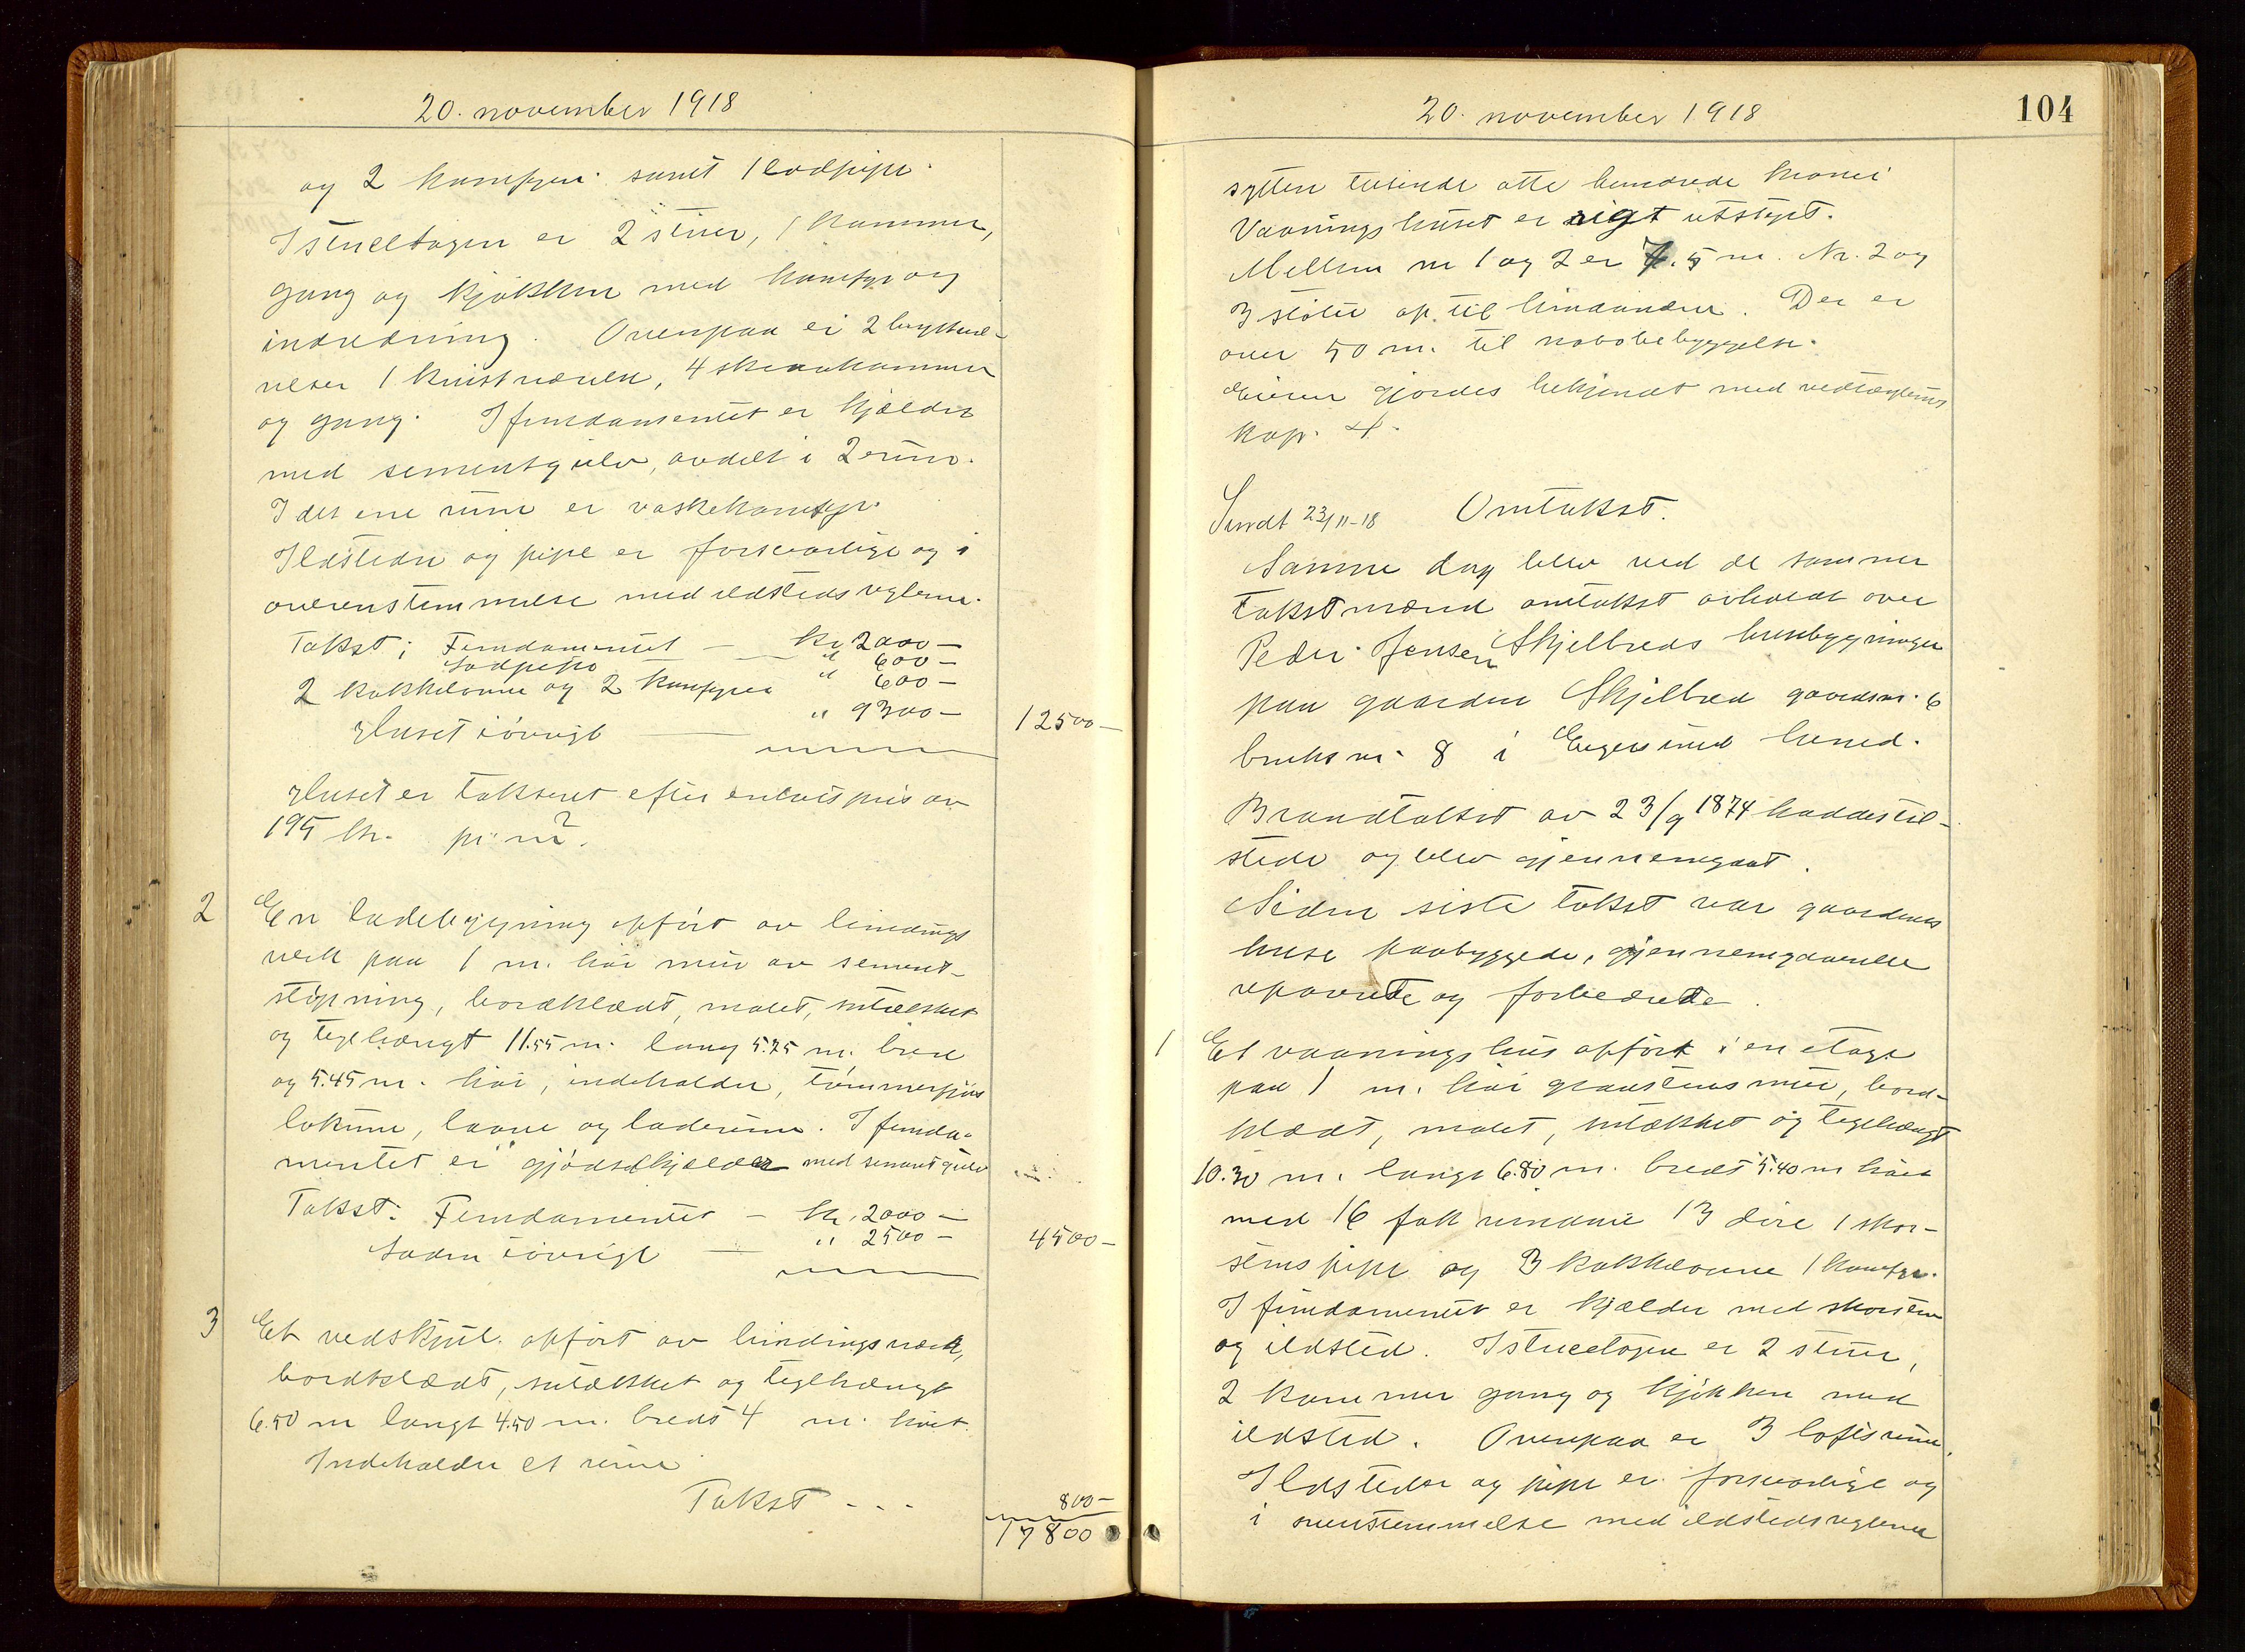 20. november 1918
og 2 komfyrer samt 1 lodpipe.
I stueetagen er 2 stuer, 1 kammer,
gang og kjøkken med komfyr og
indredning. Ovenpaa er 2
1 kvistværelse, 4 skraakammer
og gang. I fundamentet er kjælder
med sementgulv, avdelt i 2 rum.
I det ene rum er vaskekomfyr.
Ildsteder og pipe er forsvarlige og i
overenstemmelse med ildstedsreglerne.
Takst; Fundamentet — kr 2000 —
Lodpipe — " 600 —
2 kakkelovne og 2 komfyrer " 600 —
Huset iøvrigt — " 9300 — 12500 —
Huset er takseret efter enhetspris av
195 kr. pr. m².
2 En ladebygning opført av bindings
verk paa 1 m. høi mur av sement-
støpning, bordklædt, malet, sutækket
og teglhængt 11.55 m. lang 5.25 m. bred
og 5.45 m. høi, indeholder, tømmerfjøs
lokum, laave og laderum. I funda-
mentet er gjødselkjelder med sement gulv
Takst. Fundamentet — kr. 2000 —
Laden iøvrigt — " 2500 — 4500 —
3 Et vedskjul opført av bindingsverk,
bordklædt, sutækket og teglhængt
6.50 m langt 4.50 m. bredt 4 m. høit.
Indeholder et rum
Takst - - - 800 —
17800
20. november 1918 104
sytten tusinde otte hundrede kroner
Vaaningshuset er rigt utstyrt.
Mellem nr 1 og 2 er 7.5 m. Nr. 2 og
3 støter op til hinanden. Der er
over 50 m. til nabobebyggelse.
Eieren gjordes bekjendt med vedtægternes
kap. 4.
Sendt 23/11-18 Omtakst.
Samme dag blev ved de samme
takstmænd omtakst avholdt over
Peder Jensen Skjelbreds husbygninger
paa gaarden Skjelbred gaardsnr. 6
bruksnr. 8 i Eigersund herred.
Brandtakst av 23/9 1874 haddes til-
stede og blev gjennemgaat.
Siden siste takst var gaardens
huse paabyggede, gjennemgaaende
reparerte og forbedrede.
1 Et vaaningshus opført i en etage
paa 1 m. høi graastensmur, bord-
klædt, malet, sutækket og teglhængt
10.30 m. langt 6.80 m. bredt 5.40 m høit
med 16 fak vinduer 13 døre 1 skor-
stenspipe og 3 kakkelovne 1 komfyr.
I fundamentet er kjælder med skorsten
og ildsted. I stueetagen er 2 stuer,
2 kammer gang og kjøkken med
ildsted. Ovenpaa er 3 loftsrum.
Ildsteder og pipe er forsvarlige og
i overenstemmelse med ildstedsreglerne